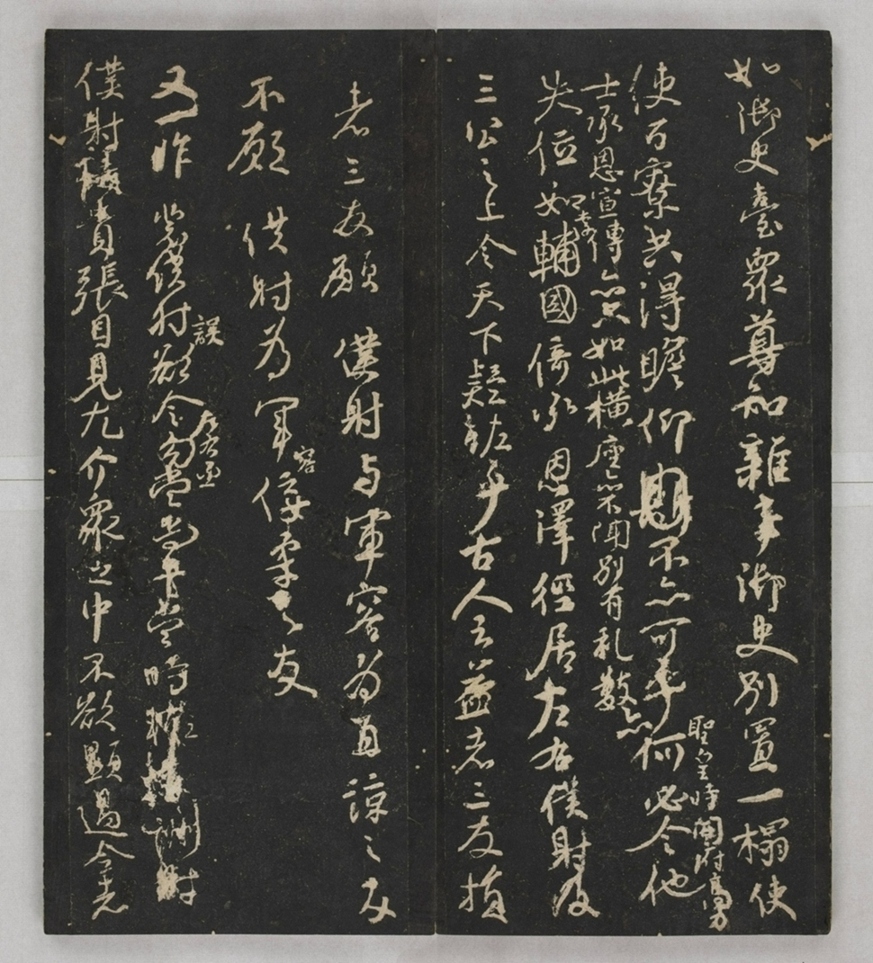 如御史臺衆尊知雜事御史別置一榻使
使百寮共得瞻仰不亦可乎何必令他
聖皇時開府高力
士承恩宣傳亦只如此橫座亦不聞別有礼數
失位如李輔國倚承恩澤徑居左右僕射及
三公之上令天下疑怪乎古人云益者三友損
者三友願僕射与軍容為直諒之友
不願僕射為軍容佞柔之友
又一昨裴僕射誤欲令左右丞勾當尚書當時輒有酬對
僕射恃貴張目見尤介衆之中不欲顯過今者